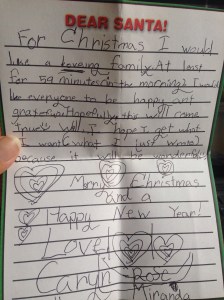 DEAR SANTA!
For Christmas I would
like a loveing family. At least
for 59 minutes in the morning? I would
like everyone to be happy and
greatful. Hopefully this will come
true. Well I hope I get what
I want. what I just wrote
because it will be wonderful.
Merry Christmas
and a
Happy New Year!
Love,
Caryn
Miranda